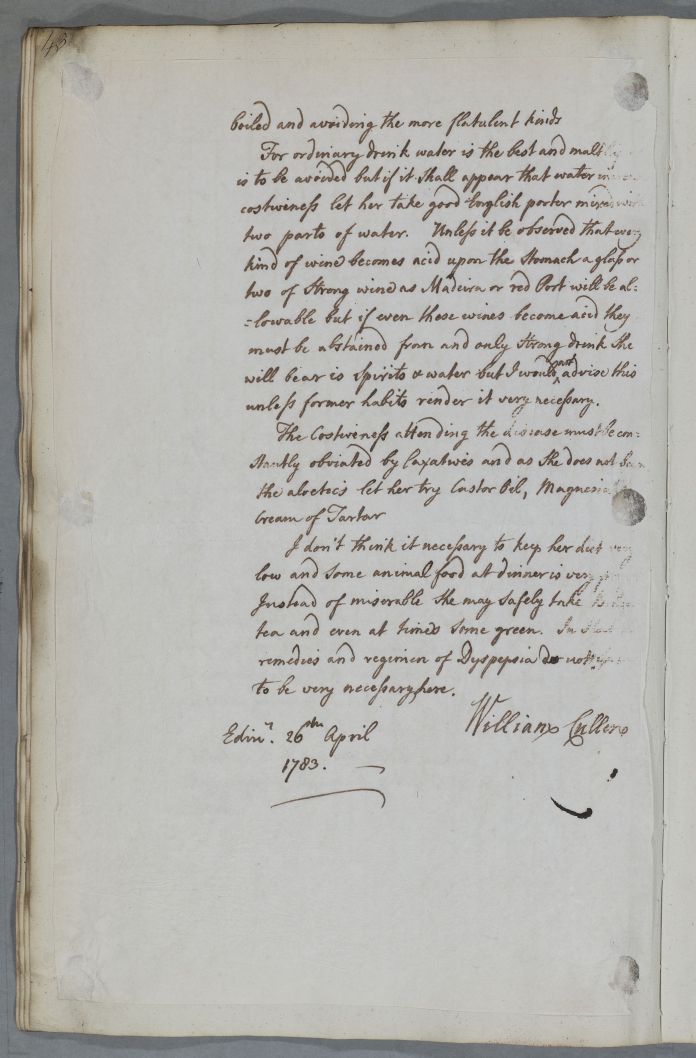 48
boiled and avoiding the more flatulent kinds
For ordinary drink water is the best and malt
is to be avoided but if it shall appear that water
costiveness let her take good English porter mixed with
two parts of water. Unless it be observed that every
kind of wine becomes acid upon the Stomach a glass or
two of Strong wine as Madeira or red Port will be al-
=lowable but if even these wines become acid they
must be abstained from and only Strong drink She
will bear is spirits & water but I would not advise this
unless former habits render it very necessary.
The Costiveness attending the disease must be con-
stantly obviated by laxatives and as She does not bear
the aloetics let her try Castor Oil, Magnesia
Cream of Tartar
I don't think it necessary to keep her diet very
low and Some animal food at dinner is very
Instead of miserable She may Safely take
tea and even at times Some green. In Short
remedies and regimen of Dyspepsia do not
to be very necessary here.
William Cullen
Edinr. 26th April
1783.